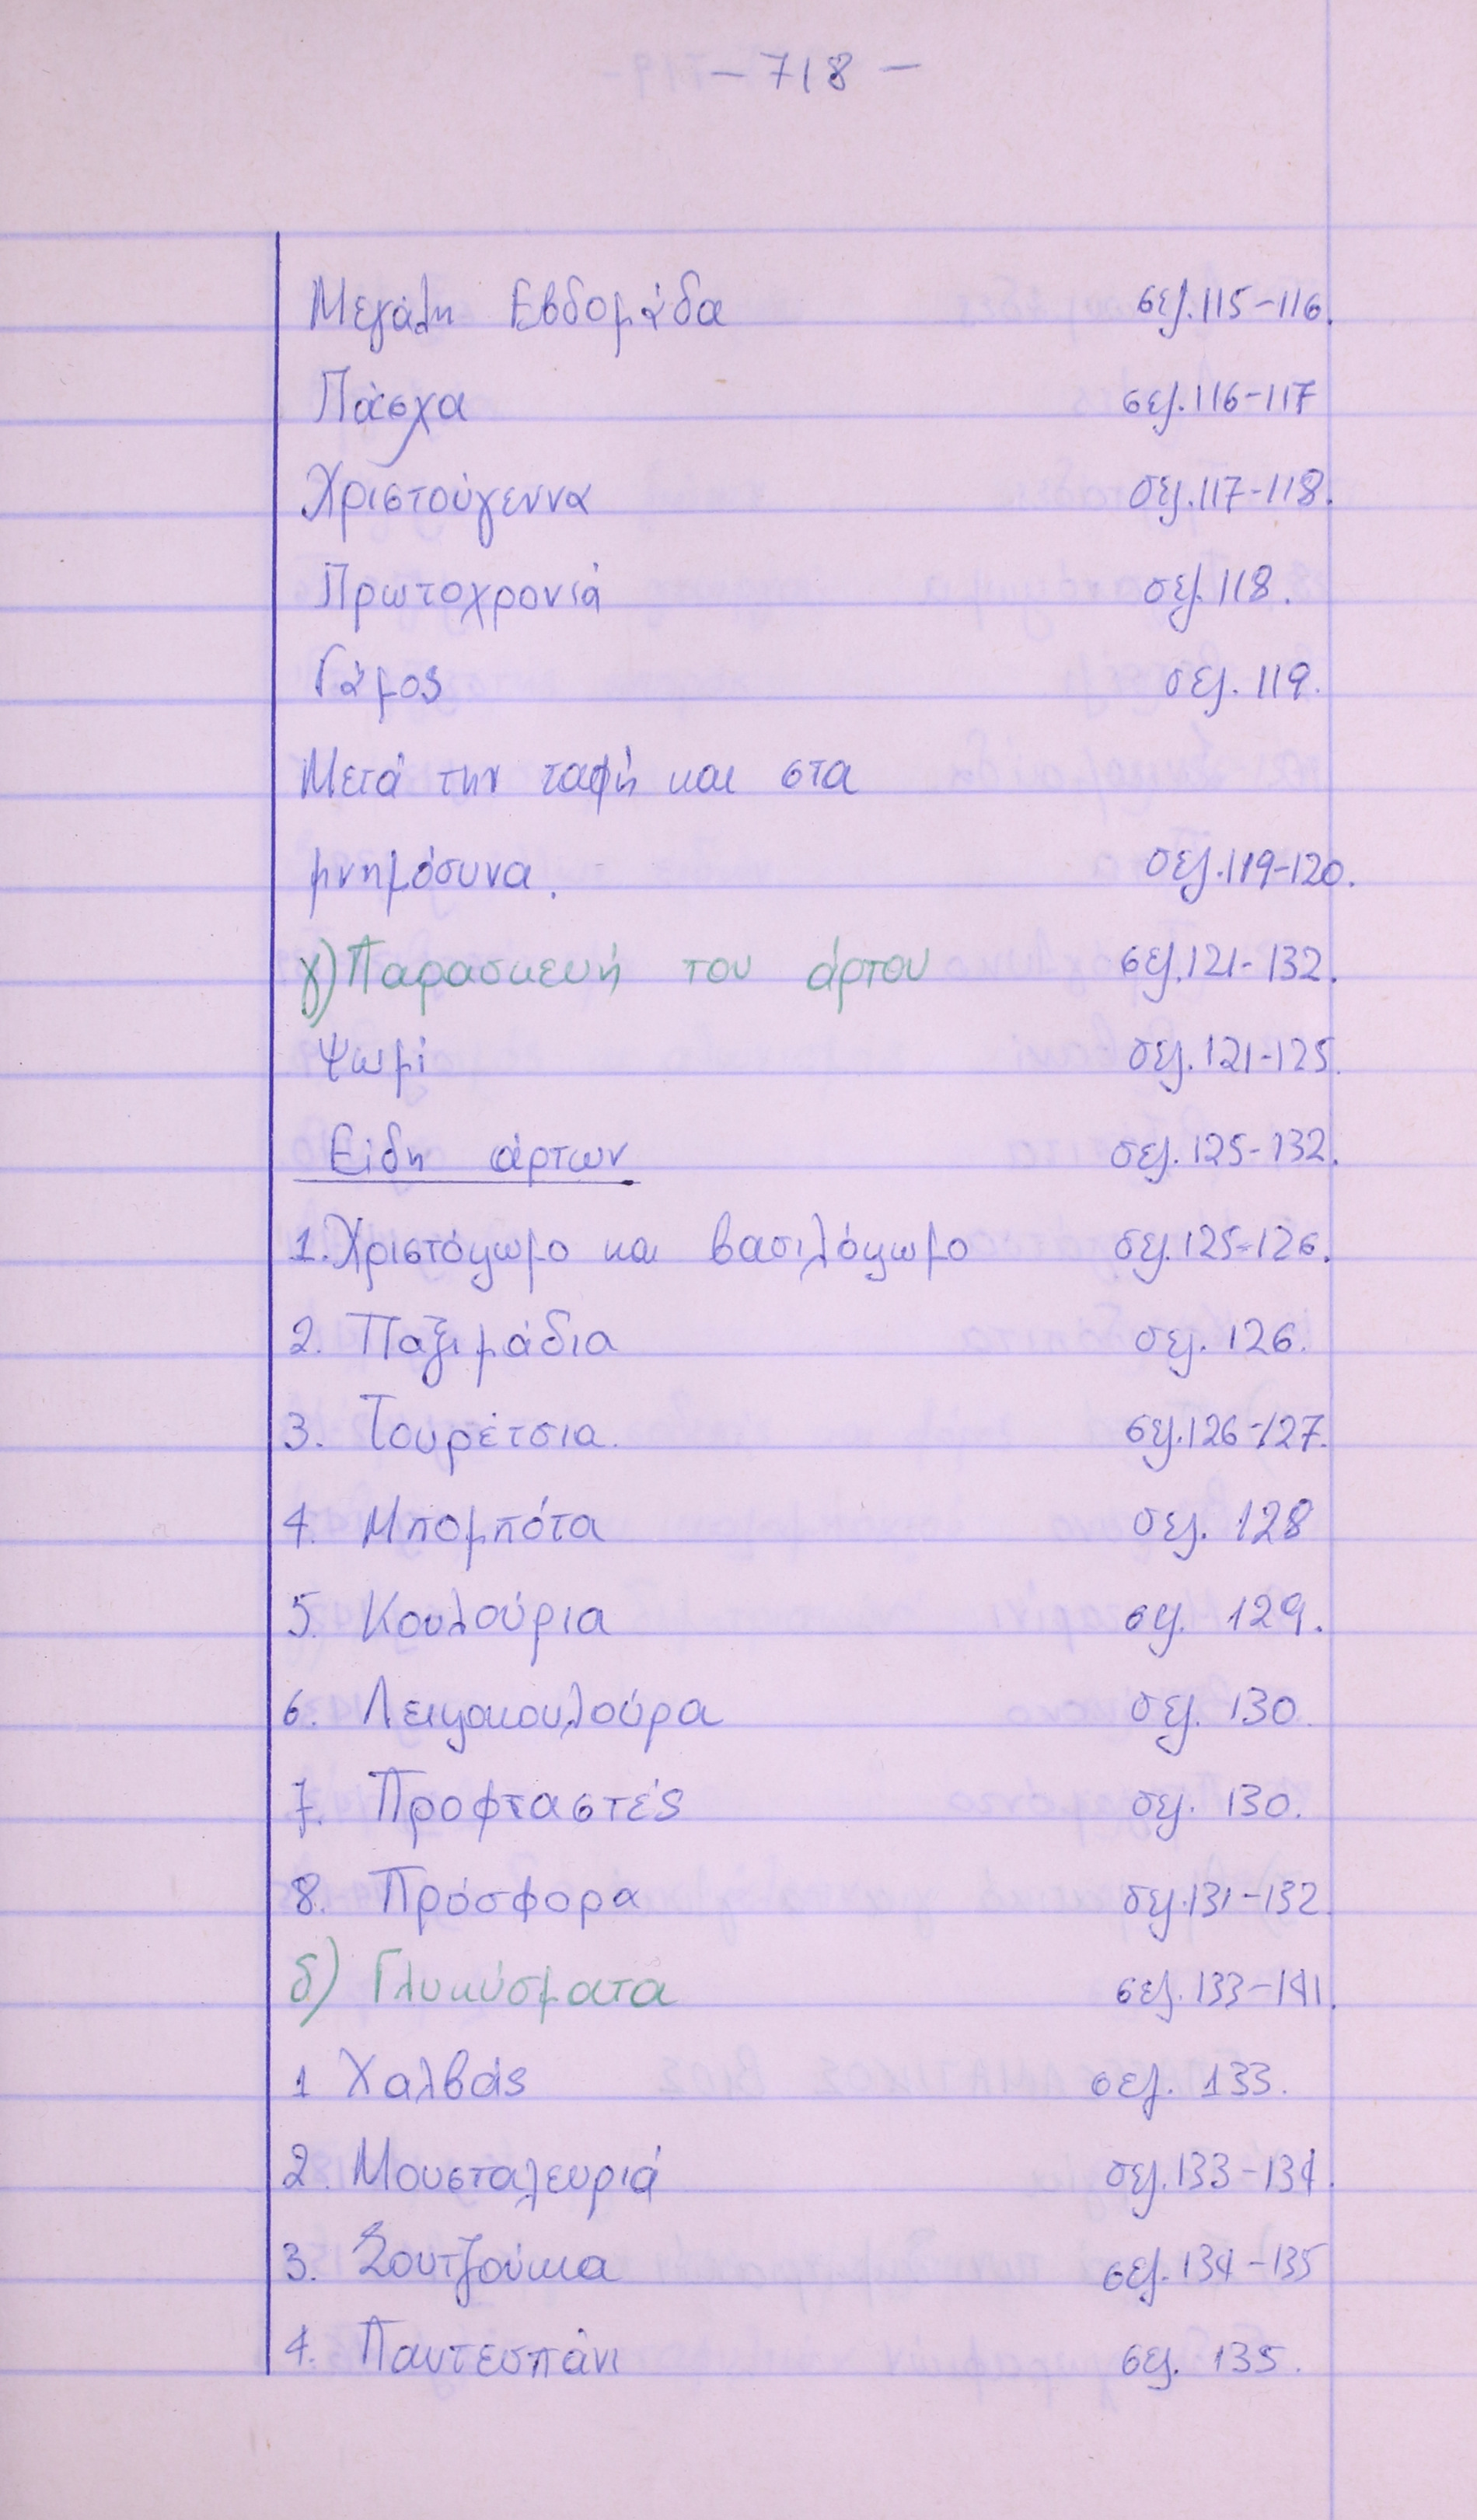 - 718 -
Μεγάλη Εβδομάδα σελ. 115-116.
Πάσχα σελ. 116-117
Χριστούγεννα σελ. 117-118.
Πρωτοχρονιά σελ. 118.
Γάμος σελ. 119.
Μετά την ταφή και στα
μνημόσυνα. σελ. 119-120.
γ) Παρασκευή του άρτου σελ. 121-132.
Ψωμί σελ. 121-125.
Είδη άρτων σελ. 125-132.
1. Χριστόψωμο και βασιλόψωμο σελ. 125-126.
2. Παξιμάδια σελ. 126.
3. Τουρέτσια. σελ. 126-127.
4. Μπομπότα σελ. 128
5. Κουλούρια σελ. 129.
6. Λειψοκουλούρα σελ. 130.
7. Προφταστές σελ. 130.
8. Πρόσφορα σελ. 131-132.
δ) Γλυκύσματα σελ. 133-141.
1 Χαλβάς σελ. 133.
2. Μουσταλευριά σελ. 133-134.
3. Σουτζούκια σελ. 134-135
4. Παντεσπάνι σελ. 135.